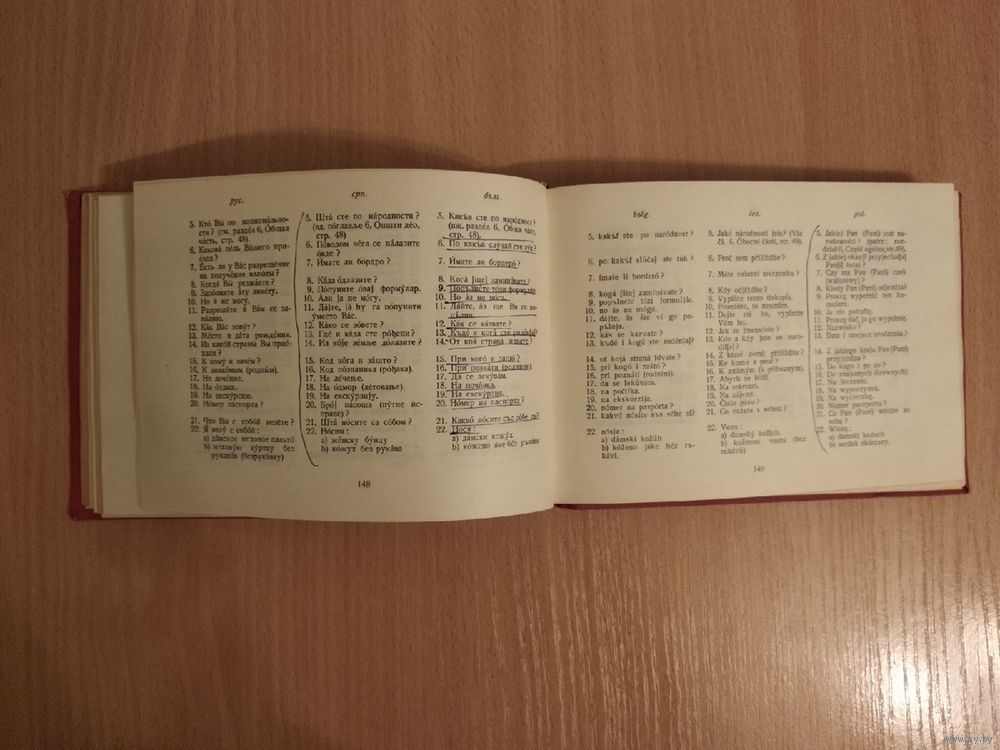 рус.
5. Кто́ Вы́ по национа́льно-
сти? (см. разде́л 6, О́бщая
часть, стр. 48).
6. Какова́ це́ль Ва́шего при-
е́зда?
7. Есть ли у Ва́с разреше́ние
на получе́ние валю́ты?
8. Когда́ Вы́ уезжа́ете?
9. Запо́лните э́ту анке́ту.
10. Но я́ не могу́.
11. Разреши́те я́ Вам за-
по́лню.
12. Ка́к Вас зову́т?
13. Ме́сто и да́та рожде́ния.
14. Из како́й страны́ Вы прие́-
хали?
15. К кому́ и заче́м?
16. К знако́мым (родны́м).
17. На лече́ние.
18. На о́тдых.
19. На экску́рсию.
20. Но́мер па́спорта?
21. Что́ Вы с собо́й везёте?
22. Я везу́ с собо́й:
а) да́мское мехово́е пальто́
б) мехову́ю ку́ртку без
рукаво́в (безрука́вку)
срп.
5. Шта́ сте по на́родности?
(вд. по́главље 6, О́пшти де́о,
стр. 48)
6. По́водом че́га се на́лазите
о́вде?
7. И́мате ли бо́рдро?
8. Ка́да о́длазите?
9. По́пуните о́вај форму́лар.
10. Али ја не мо́гу.
11. Да́јте, ја́ ћу га по́пунити
у́место Ва́с.
12. Ка́ко се зо́вете?
13. Где́ и ка́да сте ро́ђени?
14. Из ко́је зе́мље до́лазите?
15. Код ко́га и за́што?
16. Код по́знаника (ро́ђака).
17. На ле́чење.
18. На о́дмор (ле́товање).
19. На екску́рзију.
20. Бро́ј па́соша (пу́тне ис-
праве)?
21. Шта́ но́сите са со́бом?
22. Но́сим:
а) же́нску бу́нду
b) ко́жух без рука́ва
бълг.
5. Какъ́в сте по наро́дност?
(вж. разде́л 6, О́бща част,
стр. 48).
6. По какъ́в слу́чай сте ту́к?
7. И́мате ли бордеро́?
8. Кога́ [ще] замина́вате?
9. Попълне́те то́зи формуля́р.
10. Но а́з не мо́га.
11. Да́йте, а́з ще Ви го по-
пъ́лня.
12. Ка́к се ка́звате?
13. Къде́ и кога́ сте роде́н[а]?
14. От коя́ страна́ и́двате?
15. При кого́ и защо́?
16. При позна́ти (родни́ни).
17. Да́ се леку́вам.
18. На почи́вка.
19. На екску́рзия.
20. Но́мер на паспо́рта?
21. Какво́ но́сите със се́бе си?
22. Но́ся:
а) да́мски кожу́х
b) ко́жено я́ке без ръка́ви
148
bŭlg.
5. kakŭ́f ste po naródnost?
6. po kakŭ́f slúčaj ste túk?
7. ímate li borderó?
8. kogá [šte] zaminávate?
9. popŭlnéte tózi formuljár.
10. no ás ne móga.
11. dájte, ás šte vi go po-
pŭ́lnja.
12. kák se kázvate?
13. kŭdé i kogá ste rodén[a]?
14. ot kojá straná ídvate?
15. pri kogó i zaštó?
16. pri poznáti (rodníni).
17. dá se lekúvam.
18. na počífka.
19. na ekskúrzija.
20. nómer na paspórta?
21. kakvó nósite sŭs sébe si?
22. nósja:
a) dámski kožúh
b) kóženo jáke bez rŭ-
kávi.
čes.
5. Jaké národnosti jste? (Viz
čl. 6. Obecné části, str. 49).
6. Proč sem přijíždíte?
7. Máte valutní stvrzenku?
8. Kdy odjíždíte?
9. Vyplňte tento tiskopis.
10. Promiňte, to neumím.
11. Dejte mi ho, vyplním
Vám ho.
12. Jak se jmenujete?
13. Kde a kdy jste se naro-
dil[a]?
14. Z které země přijíždíte?
15. Ke komu a proč?
16. K známým (k příbuzným).
17. Abych se léčil.
18. Na rekreaci.
19. Na zájezd.
20. Číslo pasu?
21. Co vezete s sebou?
22. Vezu:
a) dámský kožich.
b) koženou vestu (bez
rukávů)
pol.
5. Jakiej Pan (Pani) jest na-
rodowości? (patrz: roz-
dział 6, Część ogólna, str. 49).
6. Z jakiej okazji przyjechał[a]
Pan[i] tutaj?
7. Czy ma Pan (Pani) czek
(walutowy)?
8. Kiedy Pan (Pani) odjeżdża?
9. Proszę wypełnić ten for-
mularz.
10. Ja nie potrafię.
11. Proszę dać, ja go wypełnię.
12. Nazwisko?
13. Data i miejsce urodzenia?
14. Z jakiego kraju Pan (Pani)
przyjeżdża?
15. Do kogo i po co?
16. Do znajomych (krewnych).
17. Na leczenie.
18. Na wypoczynek.
19. Na wycieczkę.
20. Numer paszportu?
21. Co Pan (Pani) wiezie ze
sobą?
22. Wiozę:
a) damski kożuch
b) serdak skórzany.
149
www.ay.by